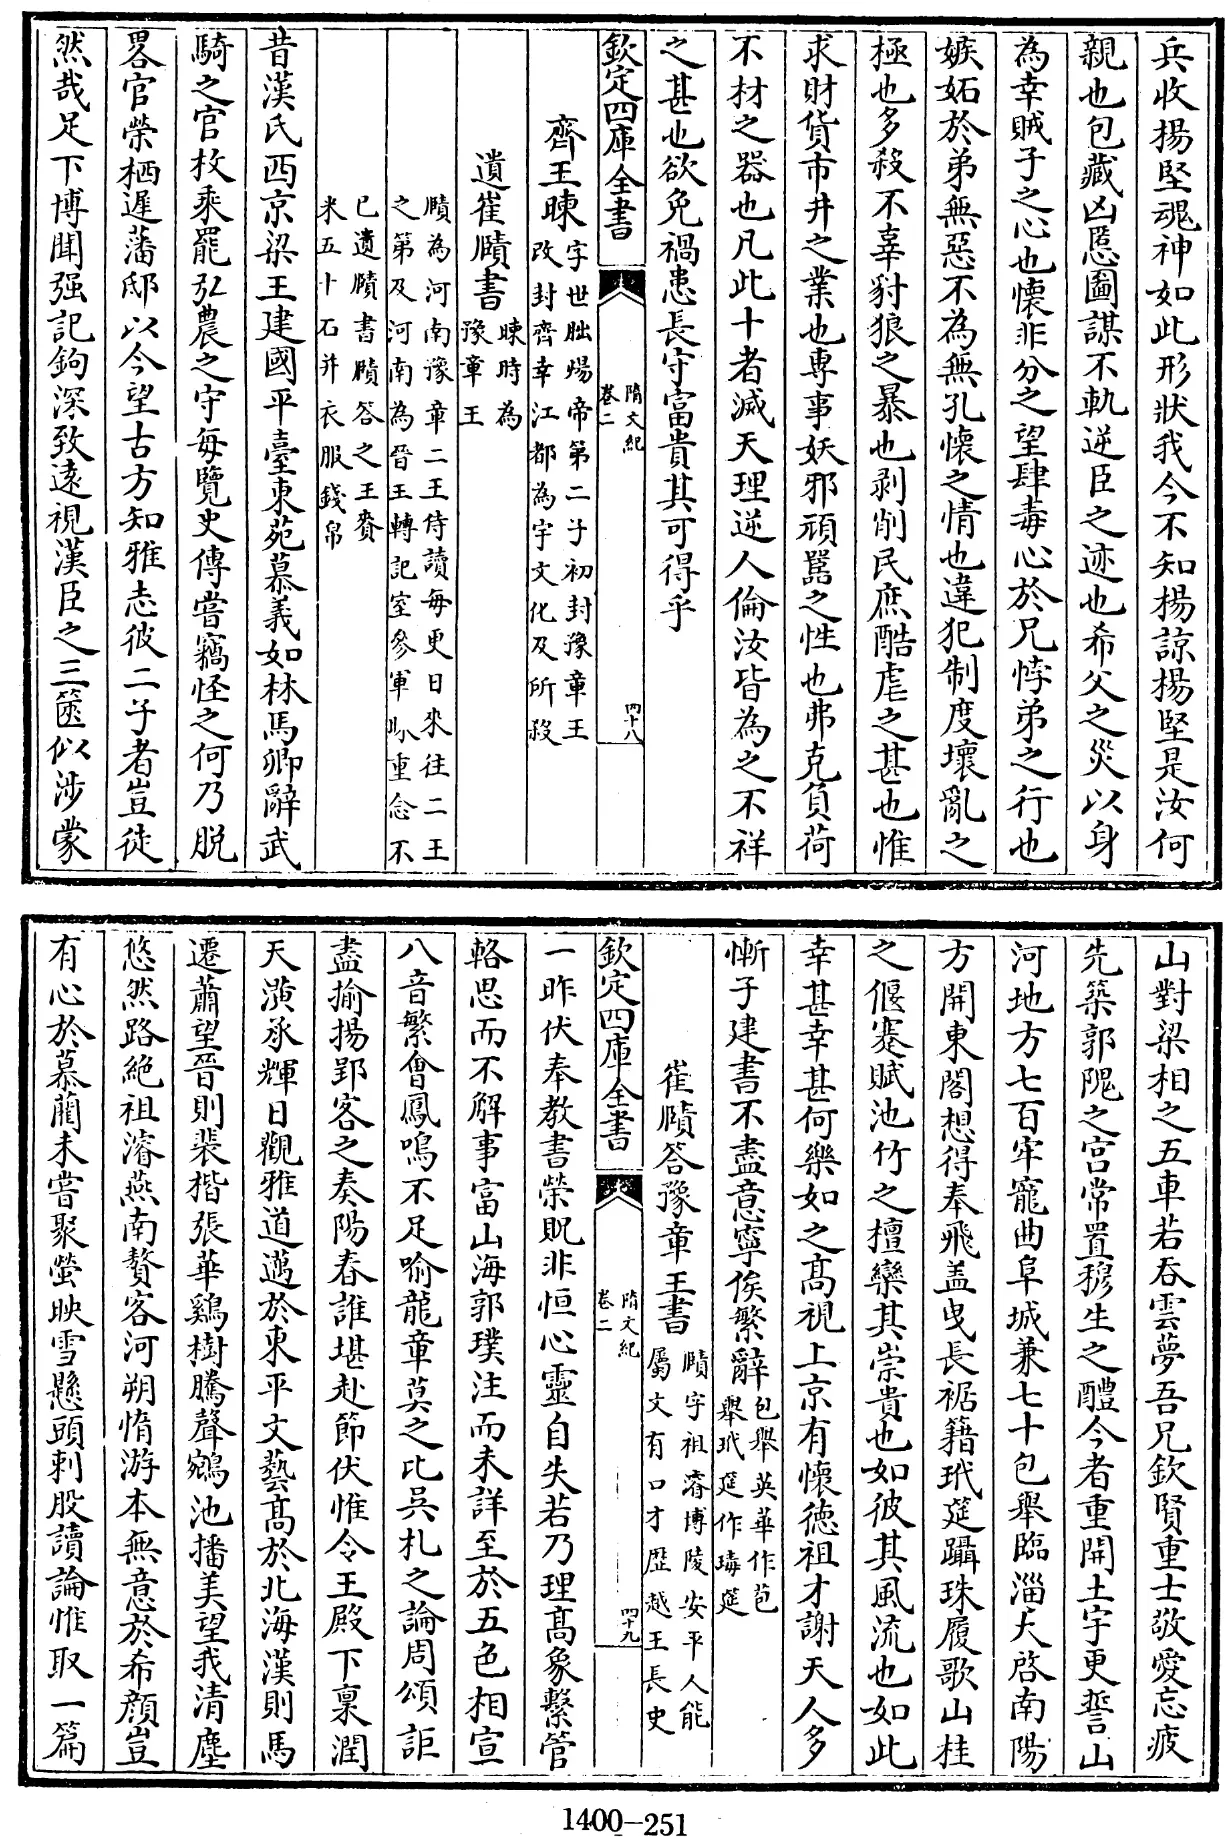 兵收楊堅魂神如此形狀我今不知楊諒楊堅是汝何
親也包藏凶慝圖謀不軌逆臣之迹也希父之災以身
為幸賊子之心也懷非分之望肆毒心於兄悖弟之行也
嫉妬於弟無惡不為無孔懷之情也違犯制度壞亂之
極也多殺不辜豺狼之暴也剥削民庶酷虐之甚也惟
求財貨市井之業也專事妖邪頑嚚之性也弗克負荷
不材之器也凡此十者滅天理逆人倫汝皆為之不祥
之甚也欲免禍患長守富貴其可得乎
欽定四庫全書
隋文紀
卷二
四十八
齊王暕
字世朏煬帝第二子初封豫章王
改封齊幸江都為宇文化及所殺
遺崔賾書
暕時為
豫章王
賾為河南豫章二王侍讀每更日來往二王
之第及河南為晉王轉記室參軍自此重念不
已遺賾書賾答之王賚
米五十石并衣服錢帛
昔漢氏西京梁王建國平臺東苑慕義如林馬卿辭武
騎之官枚乘罷弘農之守每覽史傳嘗竊怪之何乃脱
畧官榮栖遲藩邸以今望古方知雅志彼二子者豈徒
然哉足下博聞强記鉤深致遠視漢臣之三篋似涉蒙
山對梁相之五車若吞雲夢吾兄欽賢重士敬愛忘疲
先築郭隗之宫常置穆生之醴今者重開土宇更誓山
河地方七百牢寵曲阜城兼七十包舉臨淄大啓南陽
方開東閣想得奉飛盖曳長裾籍玳筵躡珠履歌山桂
之偃蹇賦池竹之檀欒其崇貴也如彼其風流也如此
幸甚幸甚何樂如之髙視上京有懷德祖才謝天人多
慚子建書不盡意寧俟繁辭
包舉英華作苞
舉玳筵作瑇筵
崔賾答豫章王書
賾字祖濬博陵安平人能
屬文有口才歴越王長史
欽定四庫全書
隋文紀
卷二
四十九
一昨伏奉教書榮貺非恒心靈自失若乃理髙象繫管
輅思而不解事富山海郭璞注而未詳至於五色相宣
八音繁會鳳鳴不足喻龍章莫之比吳札之論周頌詎
盡揄揚郢客之奏陽春誰堪赴節伏惟令王殿下稟潤
天潢承輝日觀雅道邁於東平文藝髙於北海漢則馬
遷蕭望晉則裴楷張華鷄樹騰聲鵷池播美望我清塵
悠然路絶祖濬燕南贅客河朔惰游本無意於希顔豈
有心於慕藺未嘗聚螢映雪懸頭刺股讀論惟取一篇
1400-251